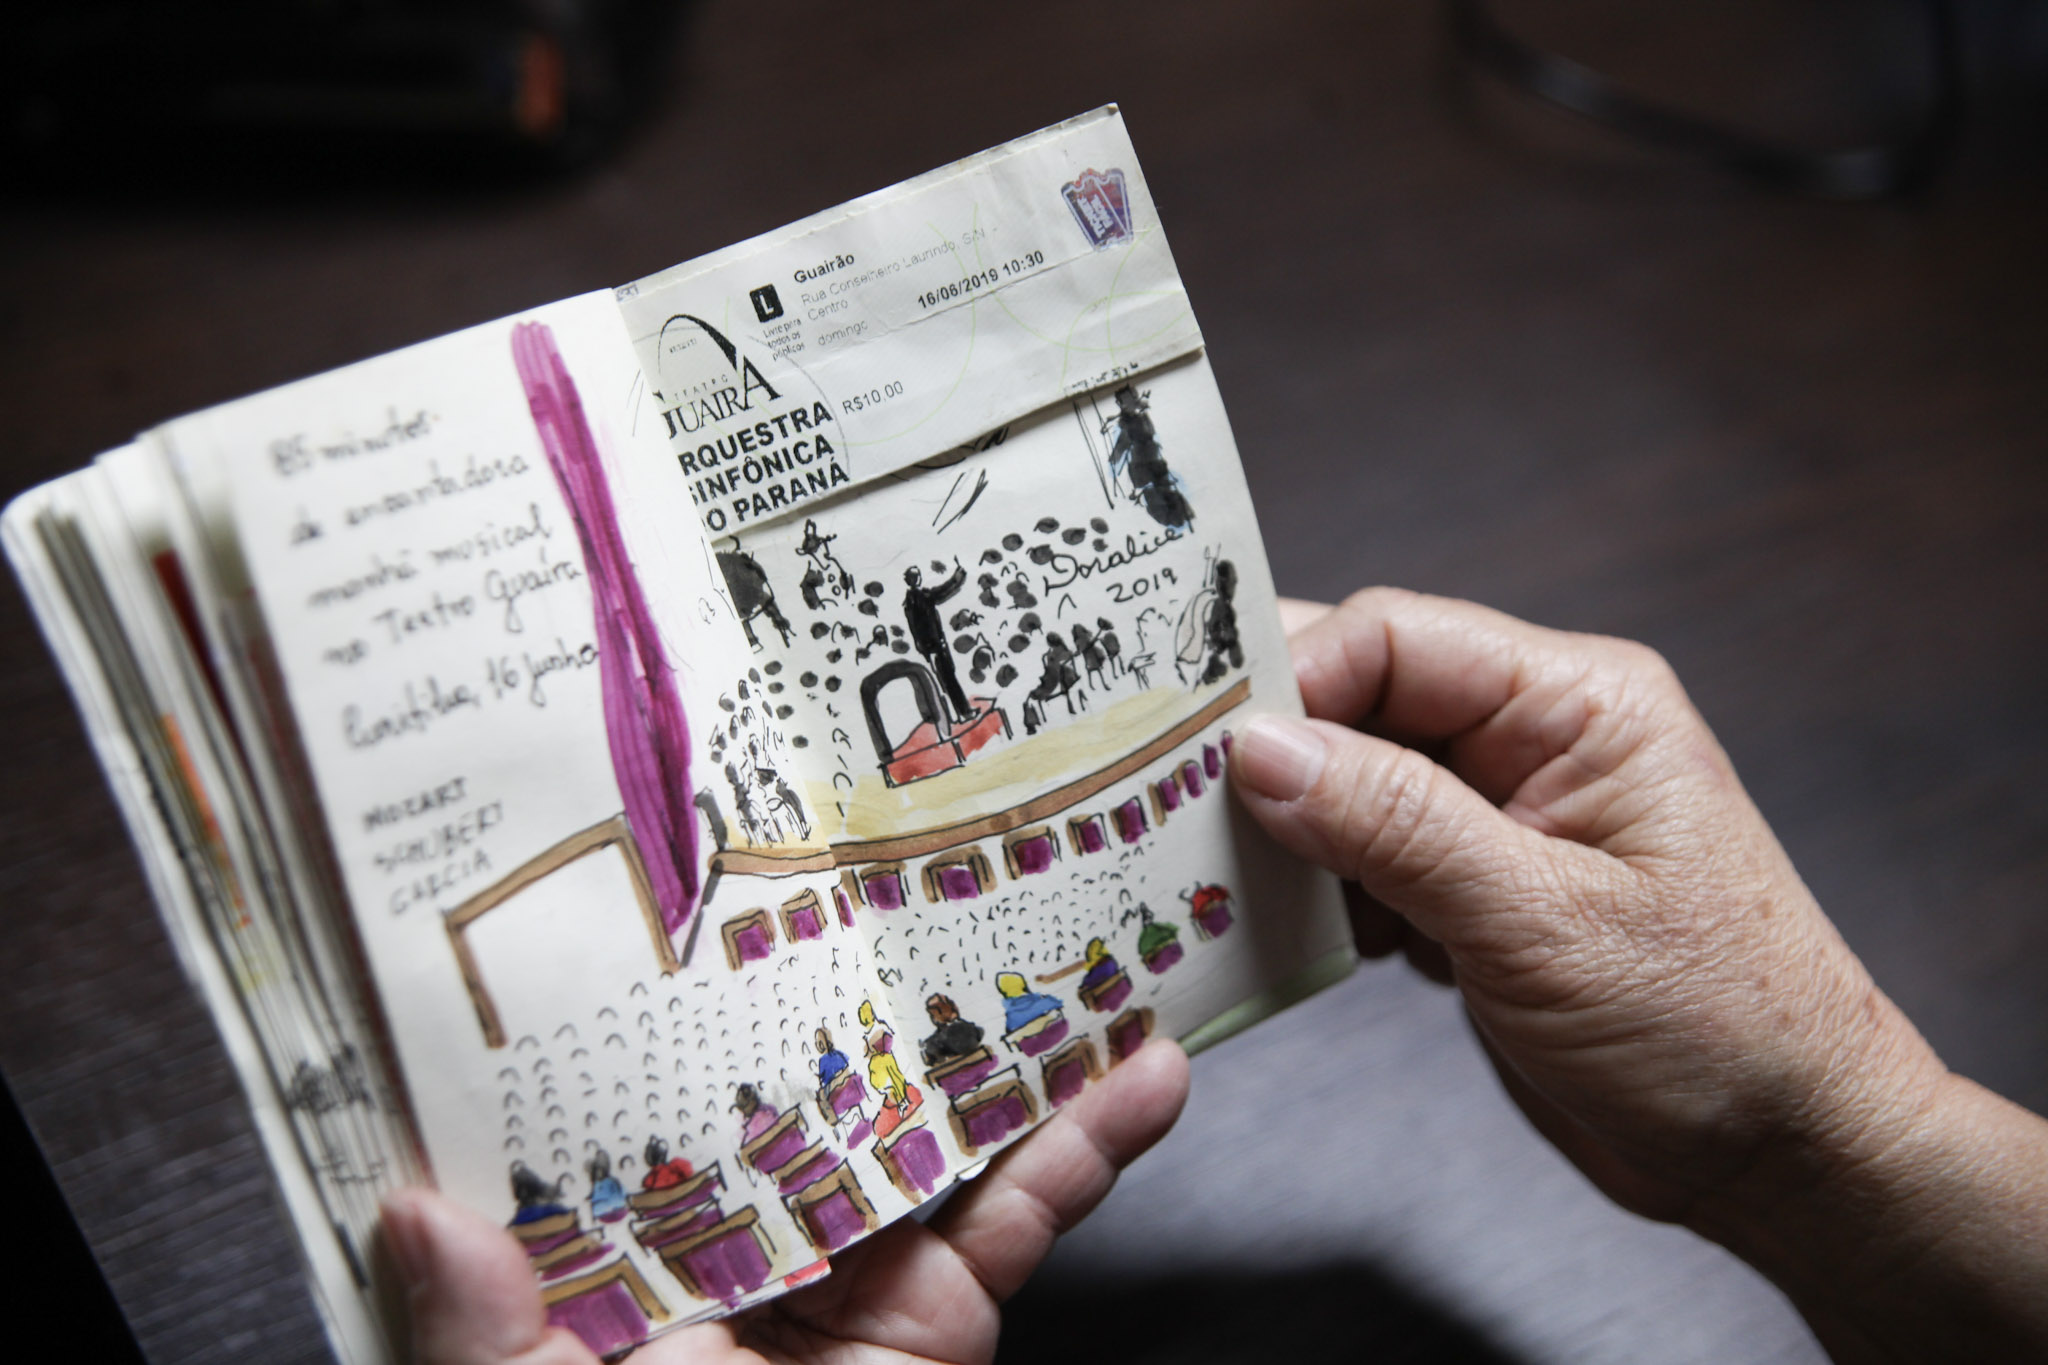 85 minutos
de encantadora
manhã musical
no Teatro Guaíra
Curitiba, 16 junho
MOZART
SCHUBERT
GARCIA
Guairão
Rua Conselheiro Laurindo, S/N -
Centro
domingo
16/06/2019 10:30
L
Livre para
todos os
públicos
TEATRO
GUAIRA
R$10,00
RQUESTRA
SINFÔNICA
O PARANÁ
Doralice
2019